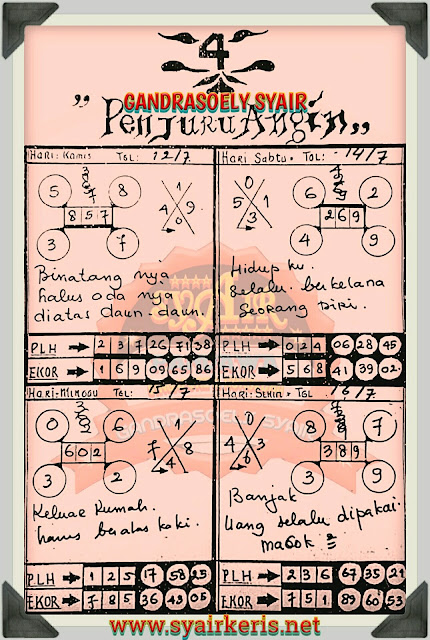 4
GANDRASOELY SYAIR
"PenJuruAngin,,
Hari: Kamis TGL: 12/7
5 8
857
3 7
1
4 9
0
Binatang nya
halus ada nya
diatas daun daun.
PLH 2 3 7 26 71 38
EKOR 1 6 9 09 65 86
Hari Sabtu. TGL: 14/7
6 2
269
4 9
0
5 3 1
Hidup ku.
Selalu. berkelana
SEORANG DIRI.
PLH 0 2 4 06 28 45
EKOR 5 6 8 41 39 02
Hari: Minggu TGL: 15/7
0 6
602
3 2
1
7 8
4
Keluar Rumah.
harus beralas kaki.
PLH 1 2 5 17 58 23
EKOR 7 8 5 36 43 05
Hari: Senin TGL 16/7
8 7
389
3 9
0
4 3
6
Banjak
Uang selalu dipakai.
masok
PLH 2 3 6 67 35 21
EKOR 7 5 1 89 60 53
SYAIR
GANDRASOELY SYAIR
www.syairkeris.net